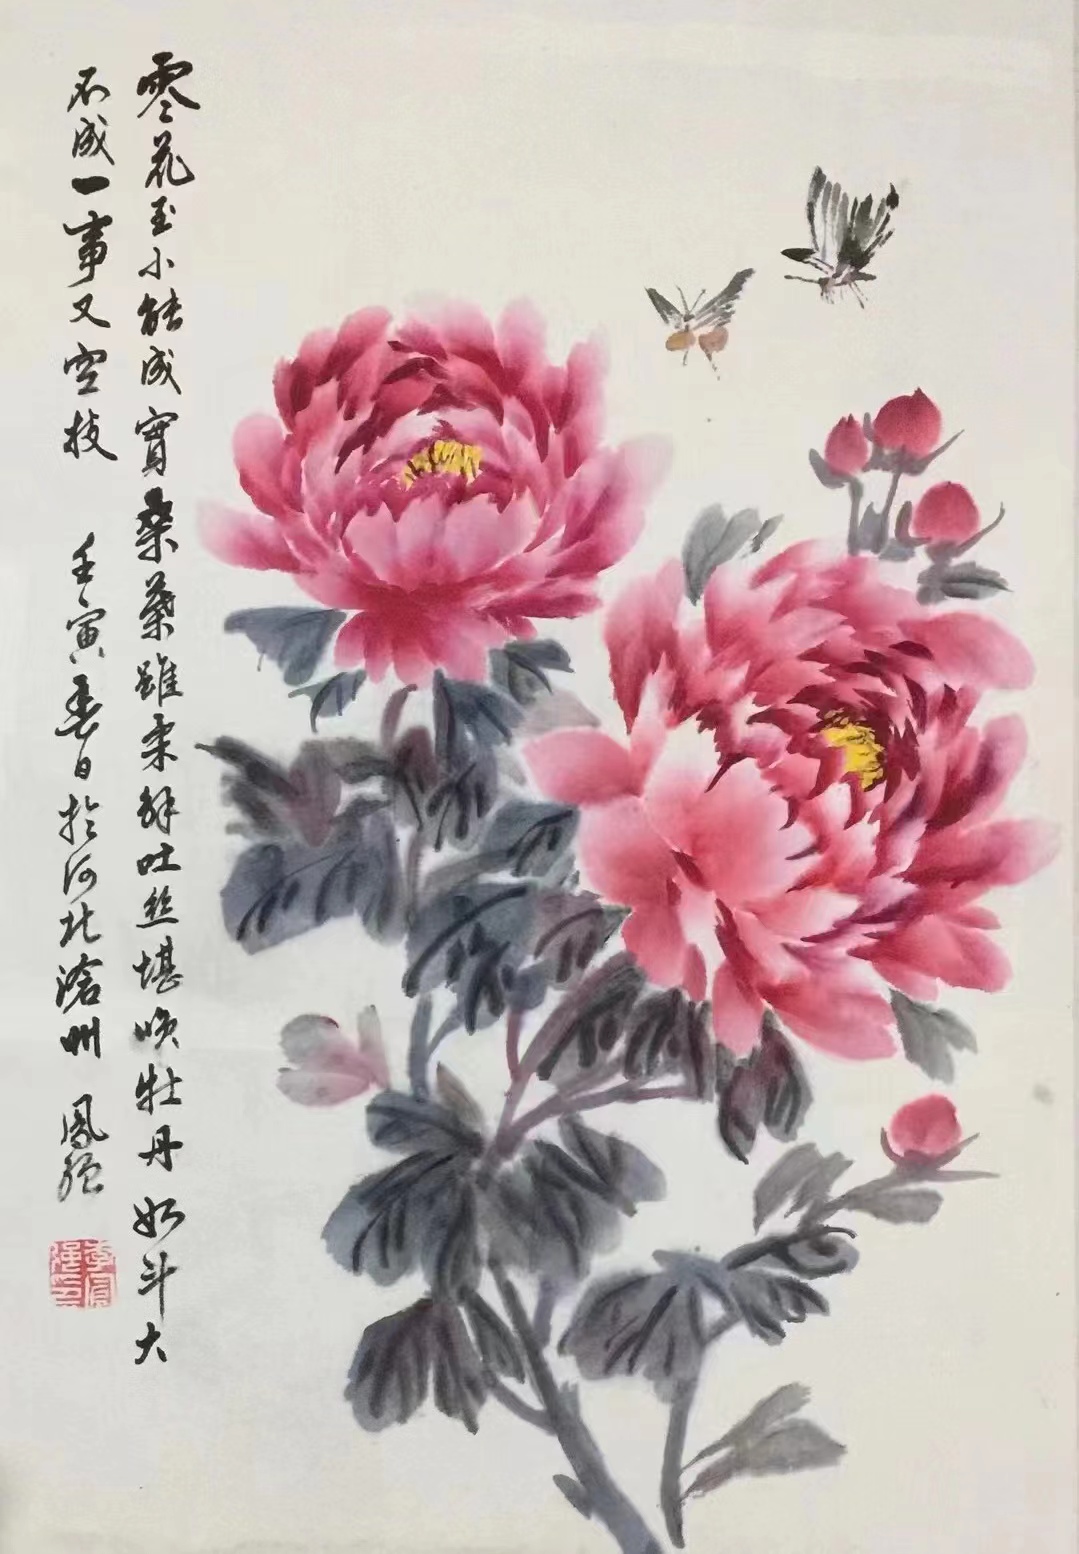 零花至小能成實桑葉雖柔解吐丝堪咲牡丹如斗大
不成一事又空枝 壬寅春日於河北滄州 凤强